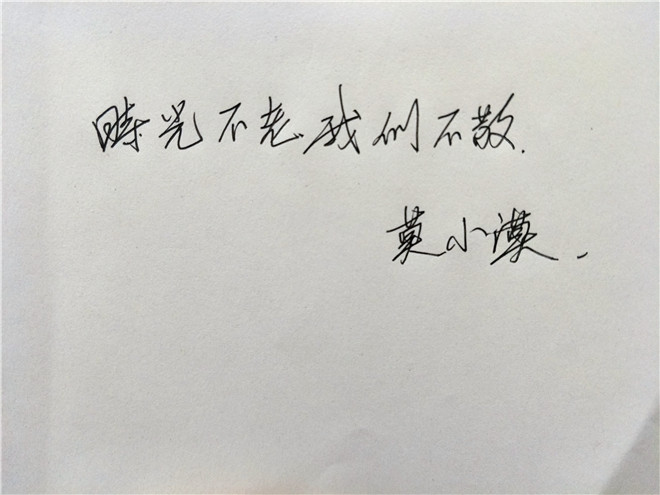 時光不老我们不散.
莫小漠.